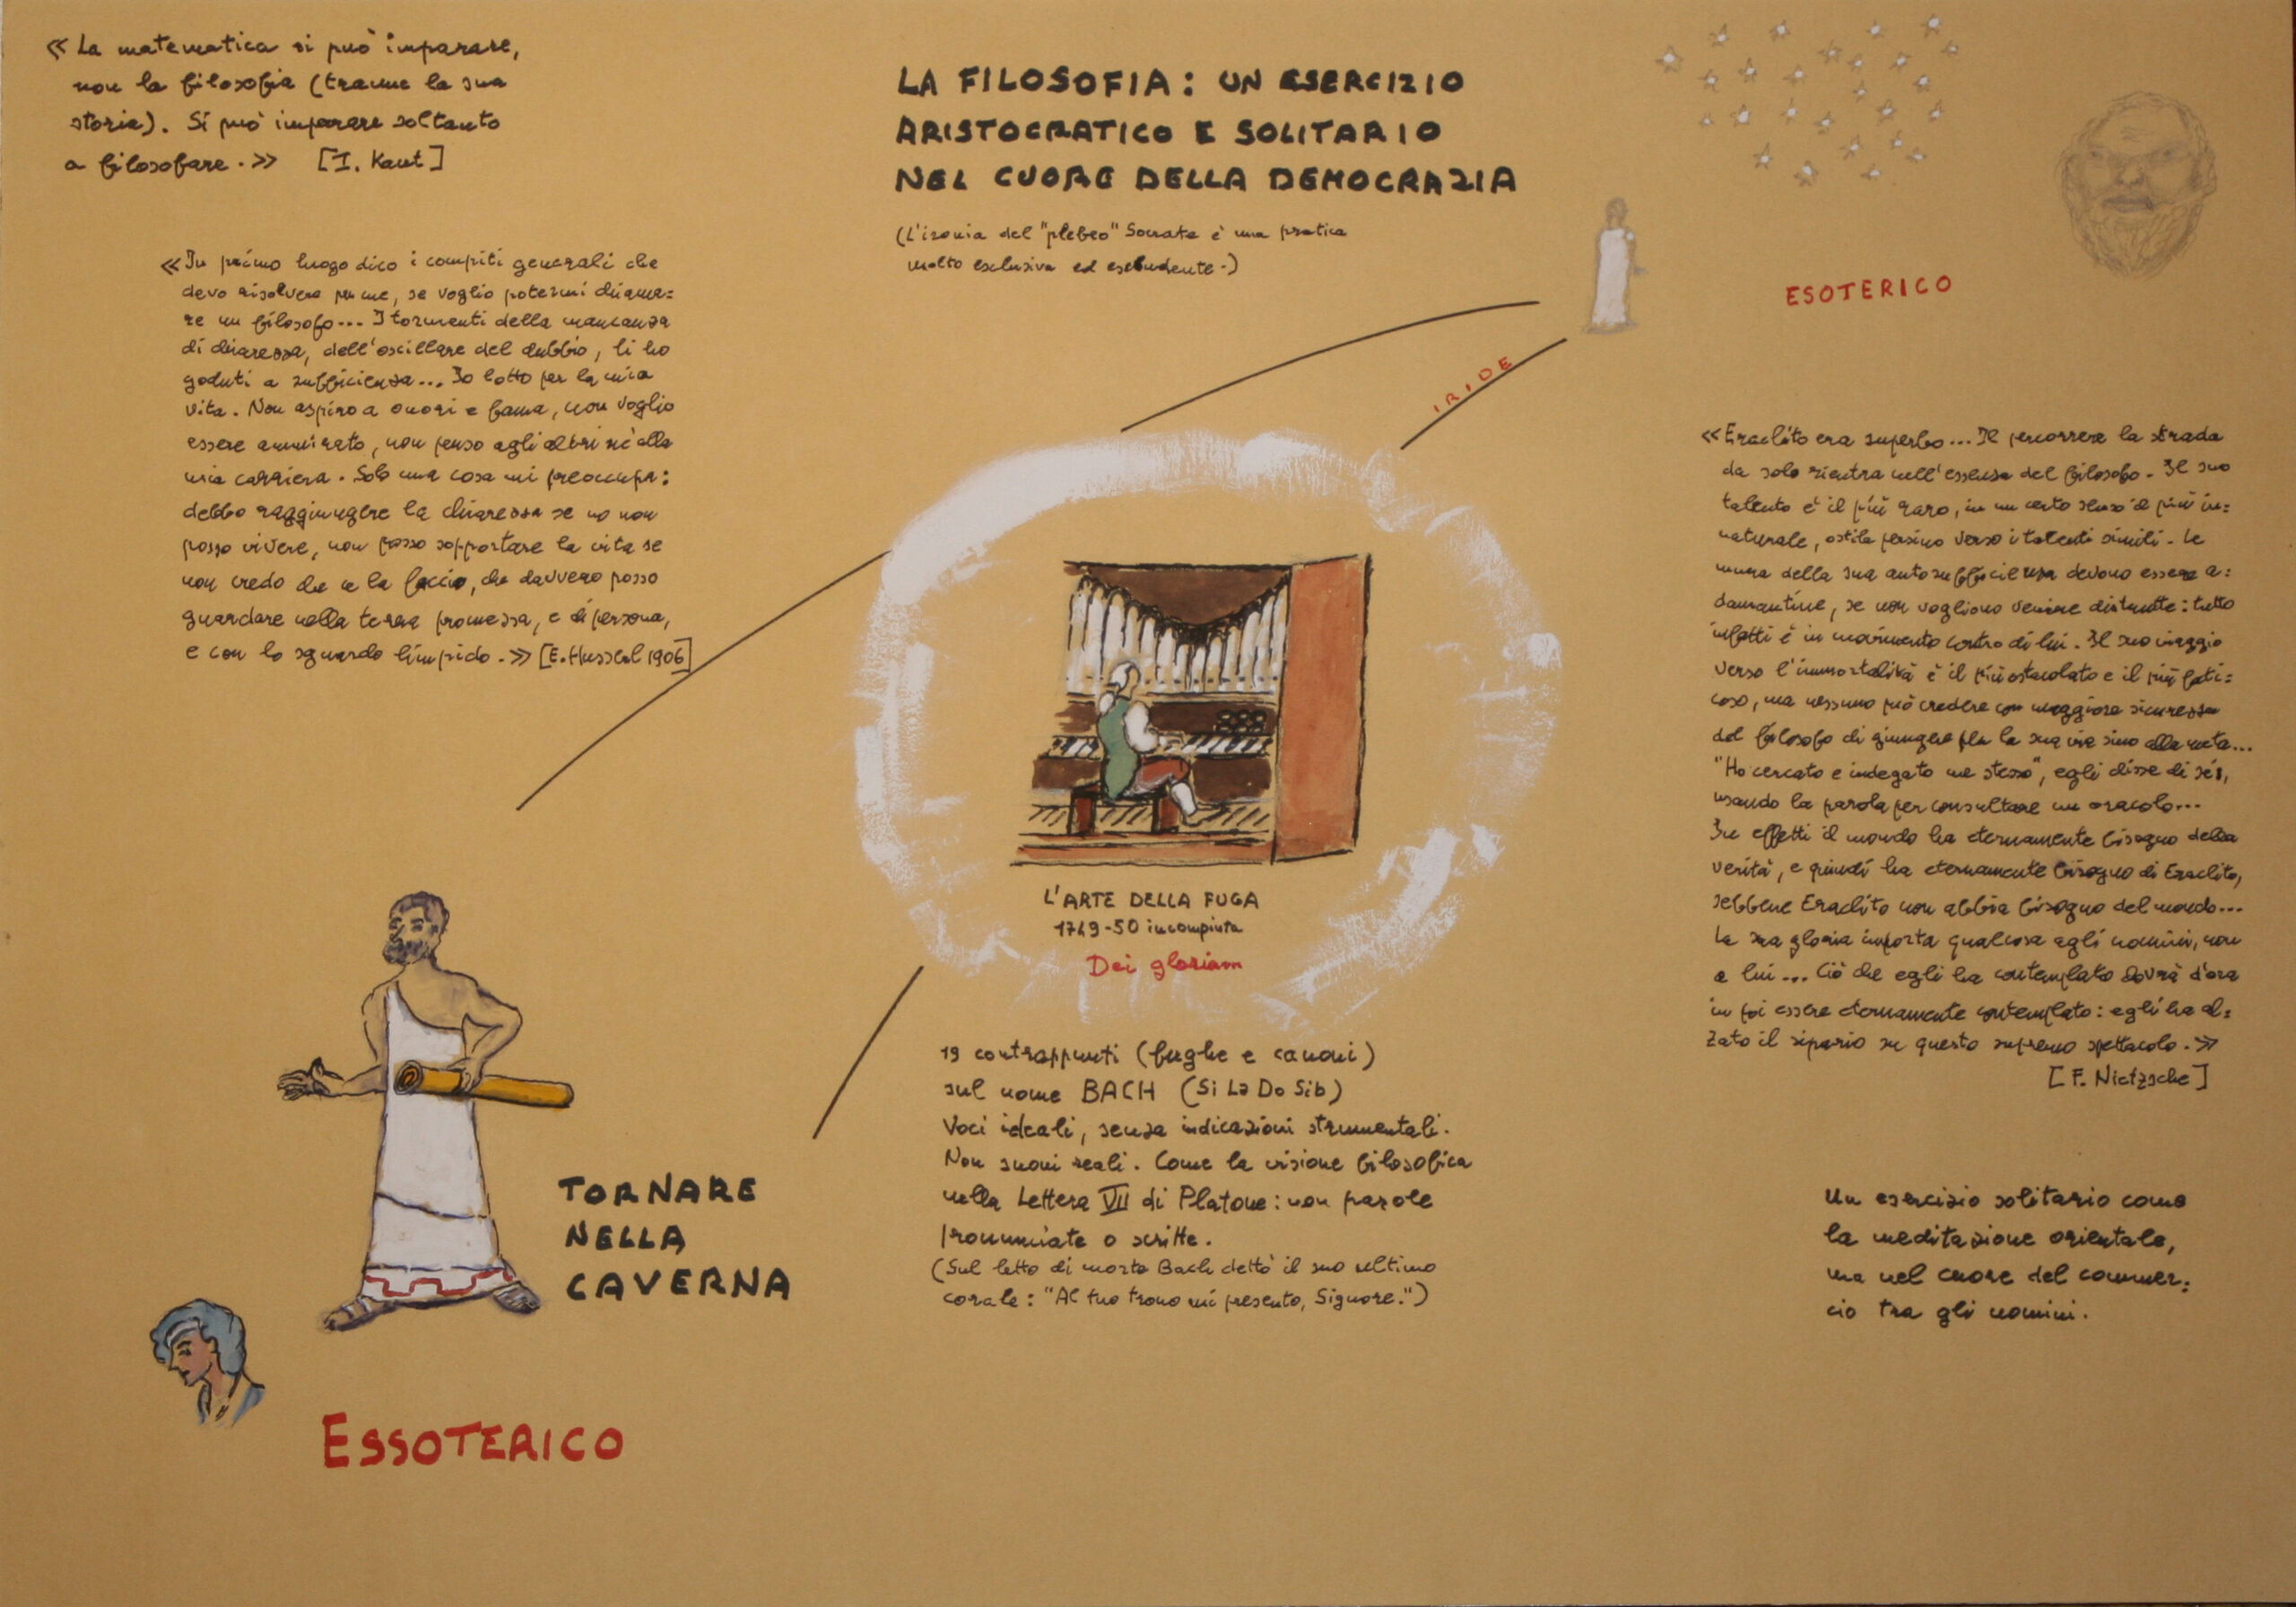 « La matematica si può imparare,
non la filosofia (tranne la sua
storia). Si può imparare soltanto
a filosofare. » [I. Kant]
LA FILOSOFIA: UN ESERCIZIO
ARISTOCRATICO E SOLITARIO
NEL CUORE DELLA DEMOCRAZIA
(L'ironia del "plebeo" Socrate è una pratica
molto esclusiva ed escludente.)
« In primo luogo dico i compiti generali che
devo risolvere per me, se voglio potermi chiama=
re un filosofo... I tormenti della mancanza
di chiarezza, dell'oscillare del dubbio, li ho
goduti a sufficienza... Io lotto per la mia
vita. Non aspiro a onori e fama, non voglio
essere ammirato, non penso agli altri né alla
mia carriera. Solo una cosa mi preoccupa:
debbo raggiungere la chiarezza se no non
posso vivere, non posso sopportare la vita se
non credo che ce la faccio, che davvero posso
guardare nella terra promessa, e di persona,
e con lo sguardo limpido. » [E. Husserl 1906]
ESOTERICO
IRIDE
« Eraclito era superbo... Il percorrere la strada
da solo rientra nell'essenza del filosofo. Il suo
talento è il più raro, in un certo senso il più in=
naturale, ostile persino verso i talenti simili. Le
mura della sua autosufficienza devono essere a=
damantine, se non vogliono venire distrutte: tutto
infatti è in movimento contro di lui. Il suo viaggio
verso l'immortalità è il più ostacolato e il più fati=
coso, ma nessuno può credere con maggiore sicurezza
del filosofo di giungere per la sua via sino alla meta...
"Ho cercato e indagato me stesso", egli disse di sé,
usando la parola per consultare un oracolo...
In effetti il mondo ha eternamente bisogno della
verità, e quindi ha eternamente bisogno di Eraclito,
sebbene Eraclito non abbia bisogno del mondo...
La sua gloria importa qualcosa agli uomini, non
a lui... Ciò che egli ha contemplato dovrà d'ora
in poi essere eternamente contemplato: egli ha al=
zato il sipario su questo supremo spettacolo. »
[F. Nietzsche]
L'ARTE DELLA FUGA
1749-50 incompiuta
Dei gloriam
19 contrappunti (fughe e canoni)
sul nome BACH (Si La Do Sib)
Voci ideali, senza indicazioni strumentali.
Non suoni reali. Come la visione filosofica
nella Lettera VII di Platone: non parole
pronunciate o scritte.
(Sul letto di morte Bach dettò il suo ultimo
corale: "Al tuo trono mi presento, Signore.")
TORNARE
NELLA
CAVERNA
ESSOTERICO
Un esercizio solitario come
la meditazione orientale,
ma nel cuore del commer=
cio tra gli uomini.